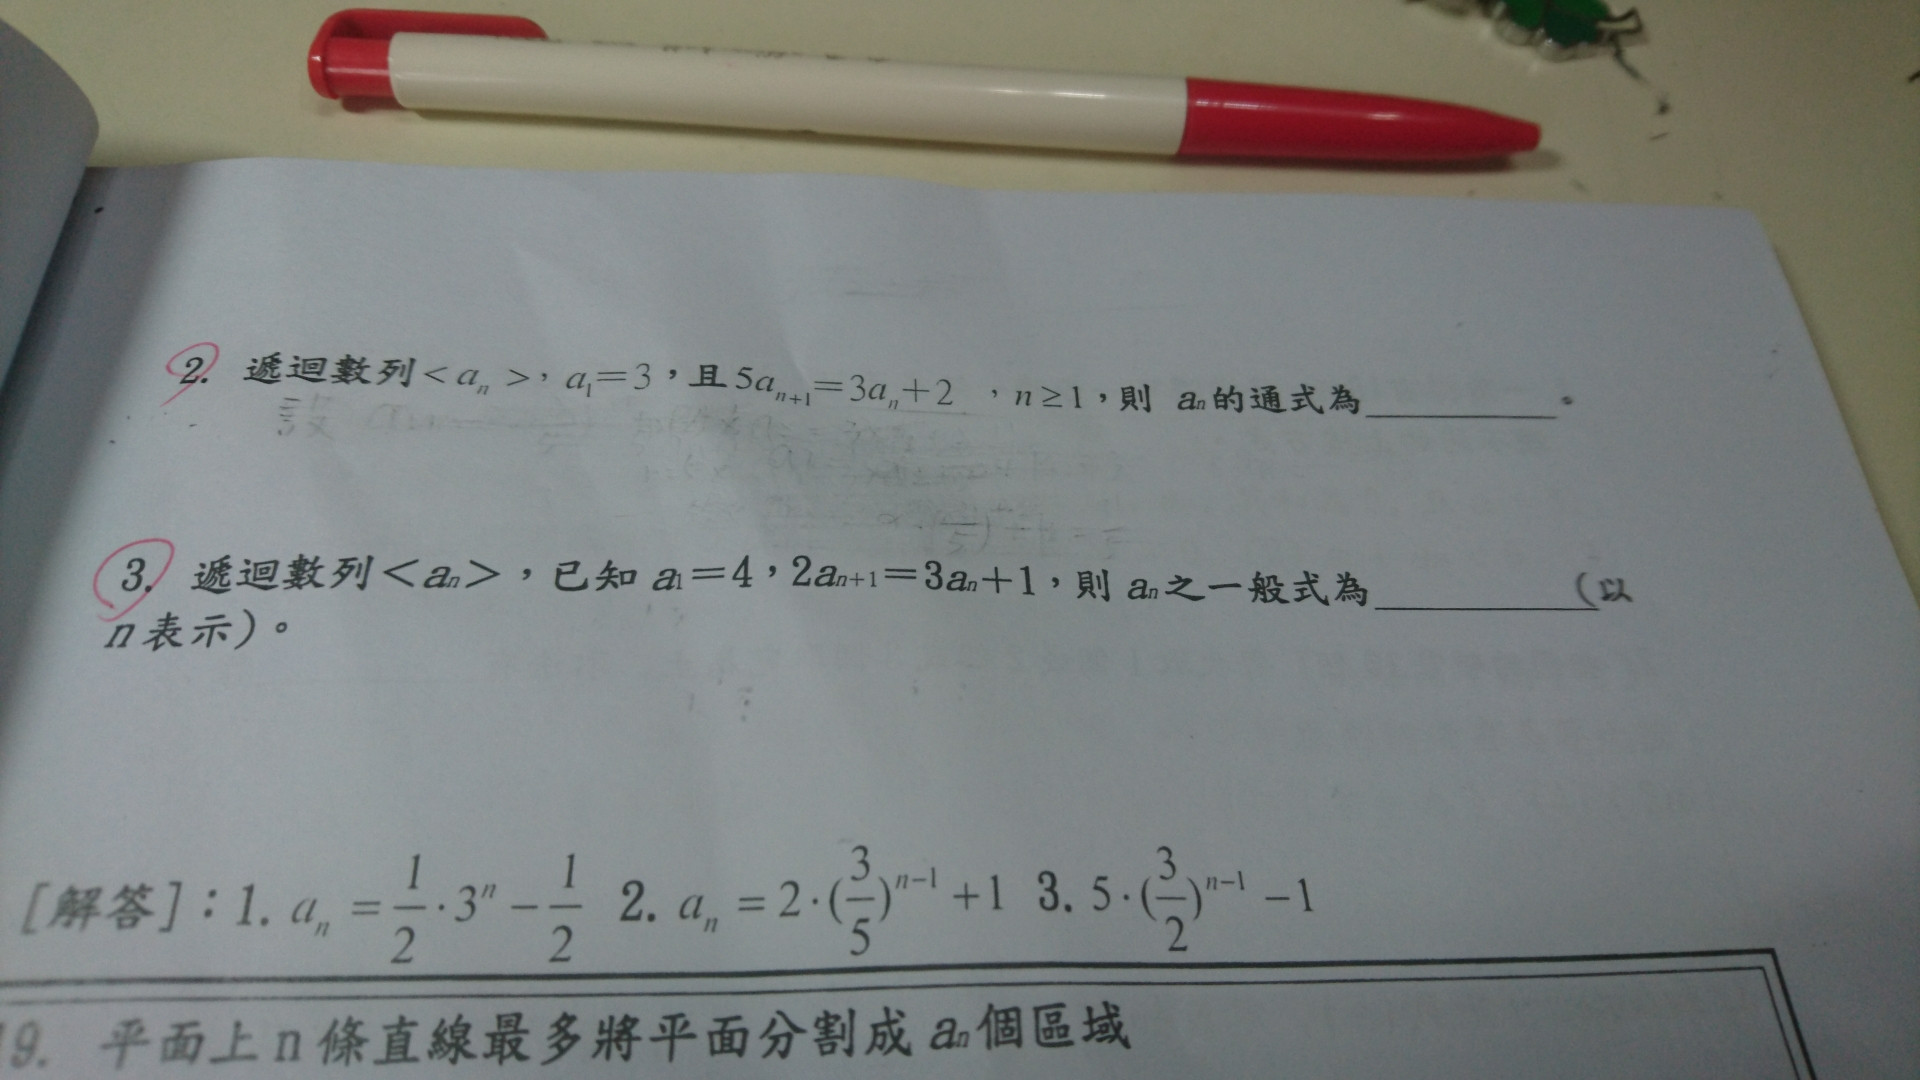 2. 遞迴數列<aₙ>，a₁=3，且5aₙ₊₁=3aₙ+2，n≥1，則 aₙ的通式為__________。
設
3. 遞迴數列<aₙ>，已知 a₁=4，2aₙ₊₁=3aₙ+1，則 aₙ之一般式為__________(以
n表示)。
[解答]：1. aₙ = 1/2·3ⁿ - 1/2 2. aₙ = 2·(3/5)ⁿ⁻¹ +1 3. 5·(3/2)ⁿ⁻¹ -1
19. 平面上n條直線最多將平面分割成aₙ個區域